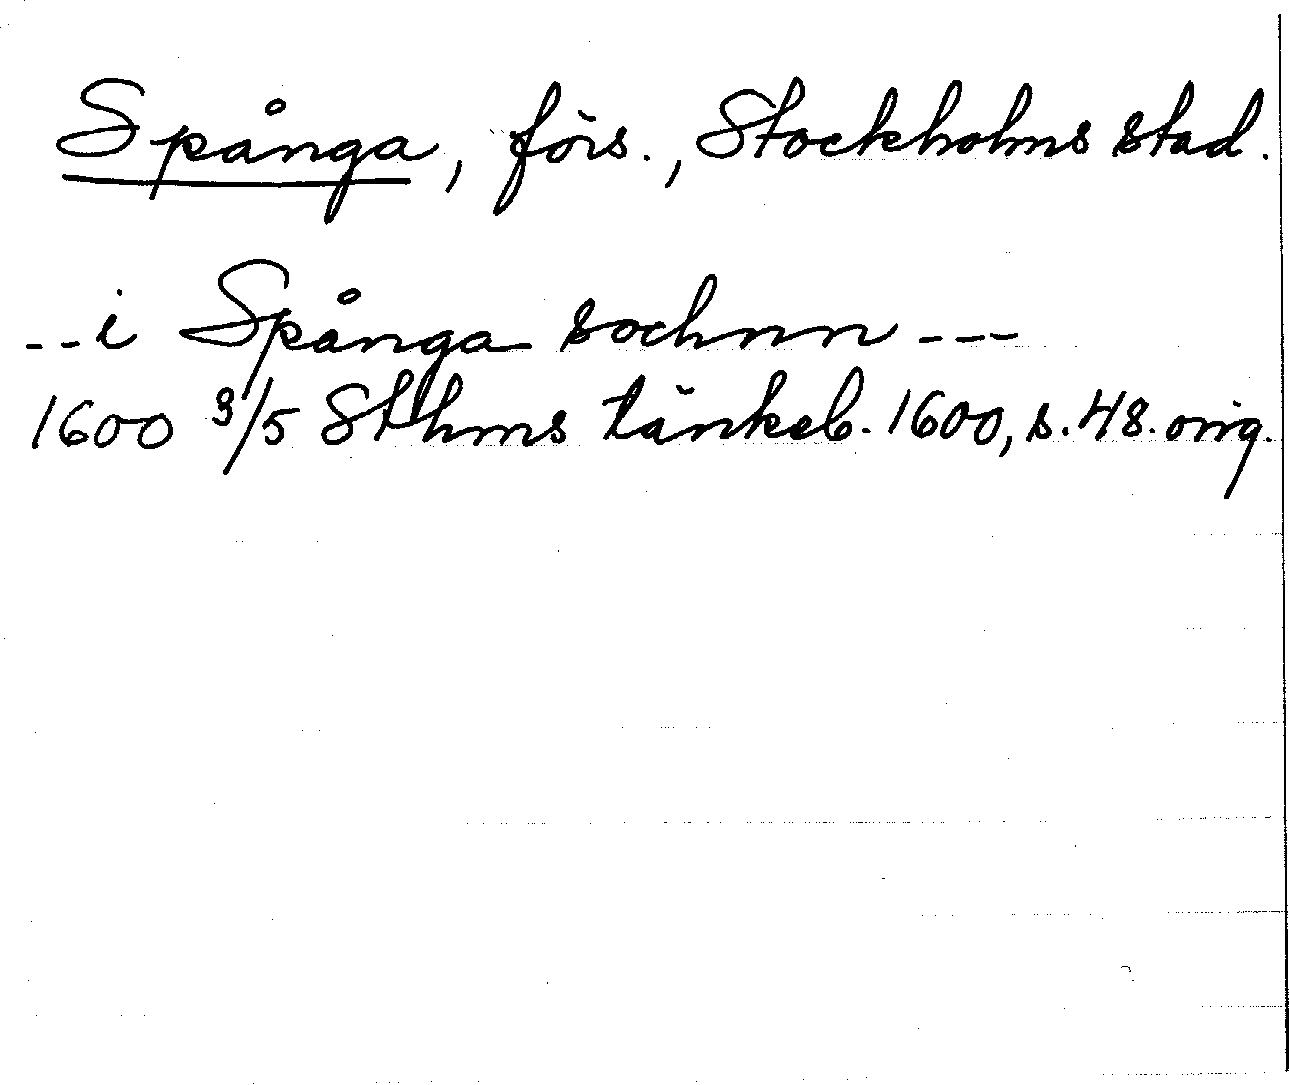 Spånga, förs., Stockholms stad.
--i Spånga sochnn ---
1600 3/5 Sthms tänkeb. 1600, s. 48. orig.